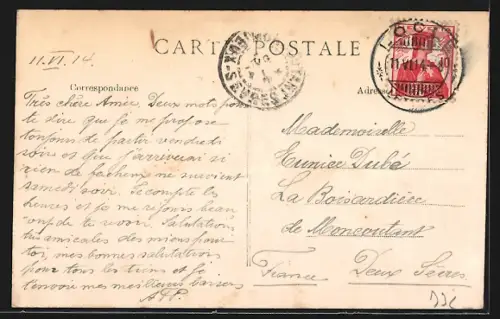 11.VI.14.
CARTE POSTALE
LOCLE
11.VI.14.-10
Correspondance
Adresse
Très chère Amie, Deux mots pour
te dire que je me propose
toujours de partir vendredi
soir et que j'arriverai si
rien de fâcheux me survient
samedi soir. Je compte les
heures et je me réjouis beau
coup de te revoir. Salutations
très amicales des miens pour
toi, mes bonnes salutations
pour tous les tiens et je
t'envoie mes meilleurs baisers
Mademoiselle
Eunice Dubé
La Boisardière
de Moncoutant
France Deux Sèvres